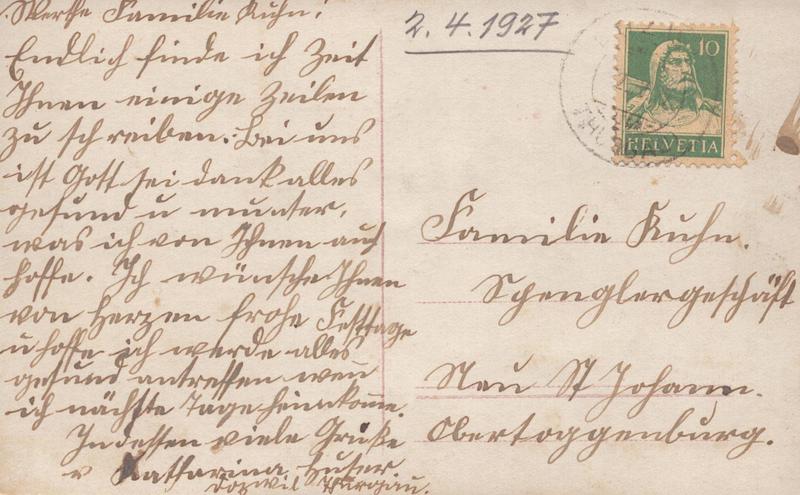 Werthe Familie Kuhn!
Endlich finde ich Zeit
Ihnen einige Zeilen
zu schreiben. Bei uns
ist Gott sei dank alles
gesund u munter,
was ich von Ihnen auch
hoffe. Ich wünsche Ihnen
von Herzen frohe Festtage
u hoffe ich werde alles
gesund antreffen wen
ich nächste Tage heimkome.
Indessen viele Grüße
v Katharina Huser
Dozwil Thurgau.
2.4.1927
10
HELVETIA
Familie Kuhn.
Spenglergeschäft
Neu St Johann.
Obertoggenburg.